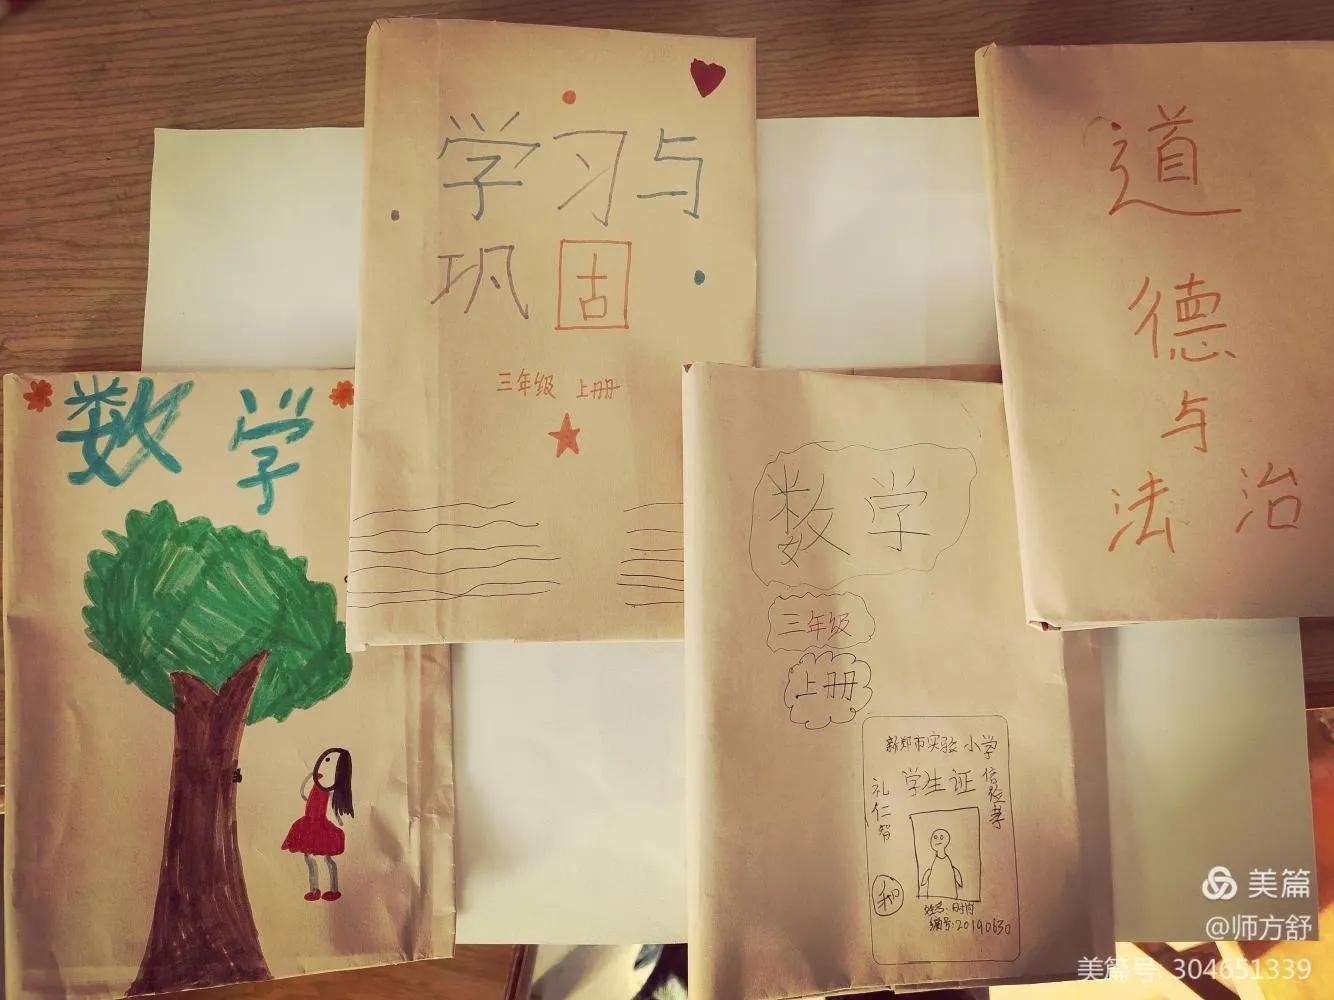 学习与
巩固
三年级 上册
道
德
与
法治
数学
数学
三年级
上册
新郑市实验小学
学生证
礼仁智
信
孝
和
姓名:
编号:20190630
美篇
@师方舒
美篇号: 304651339